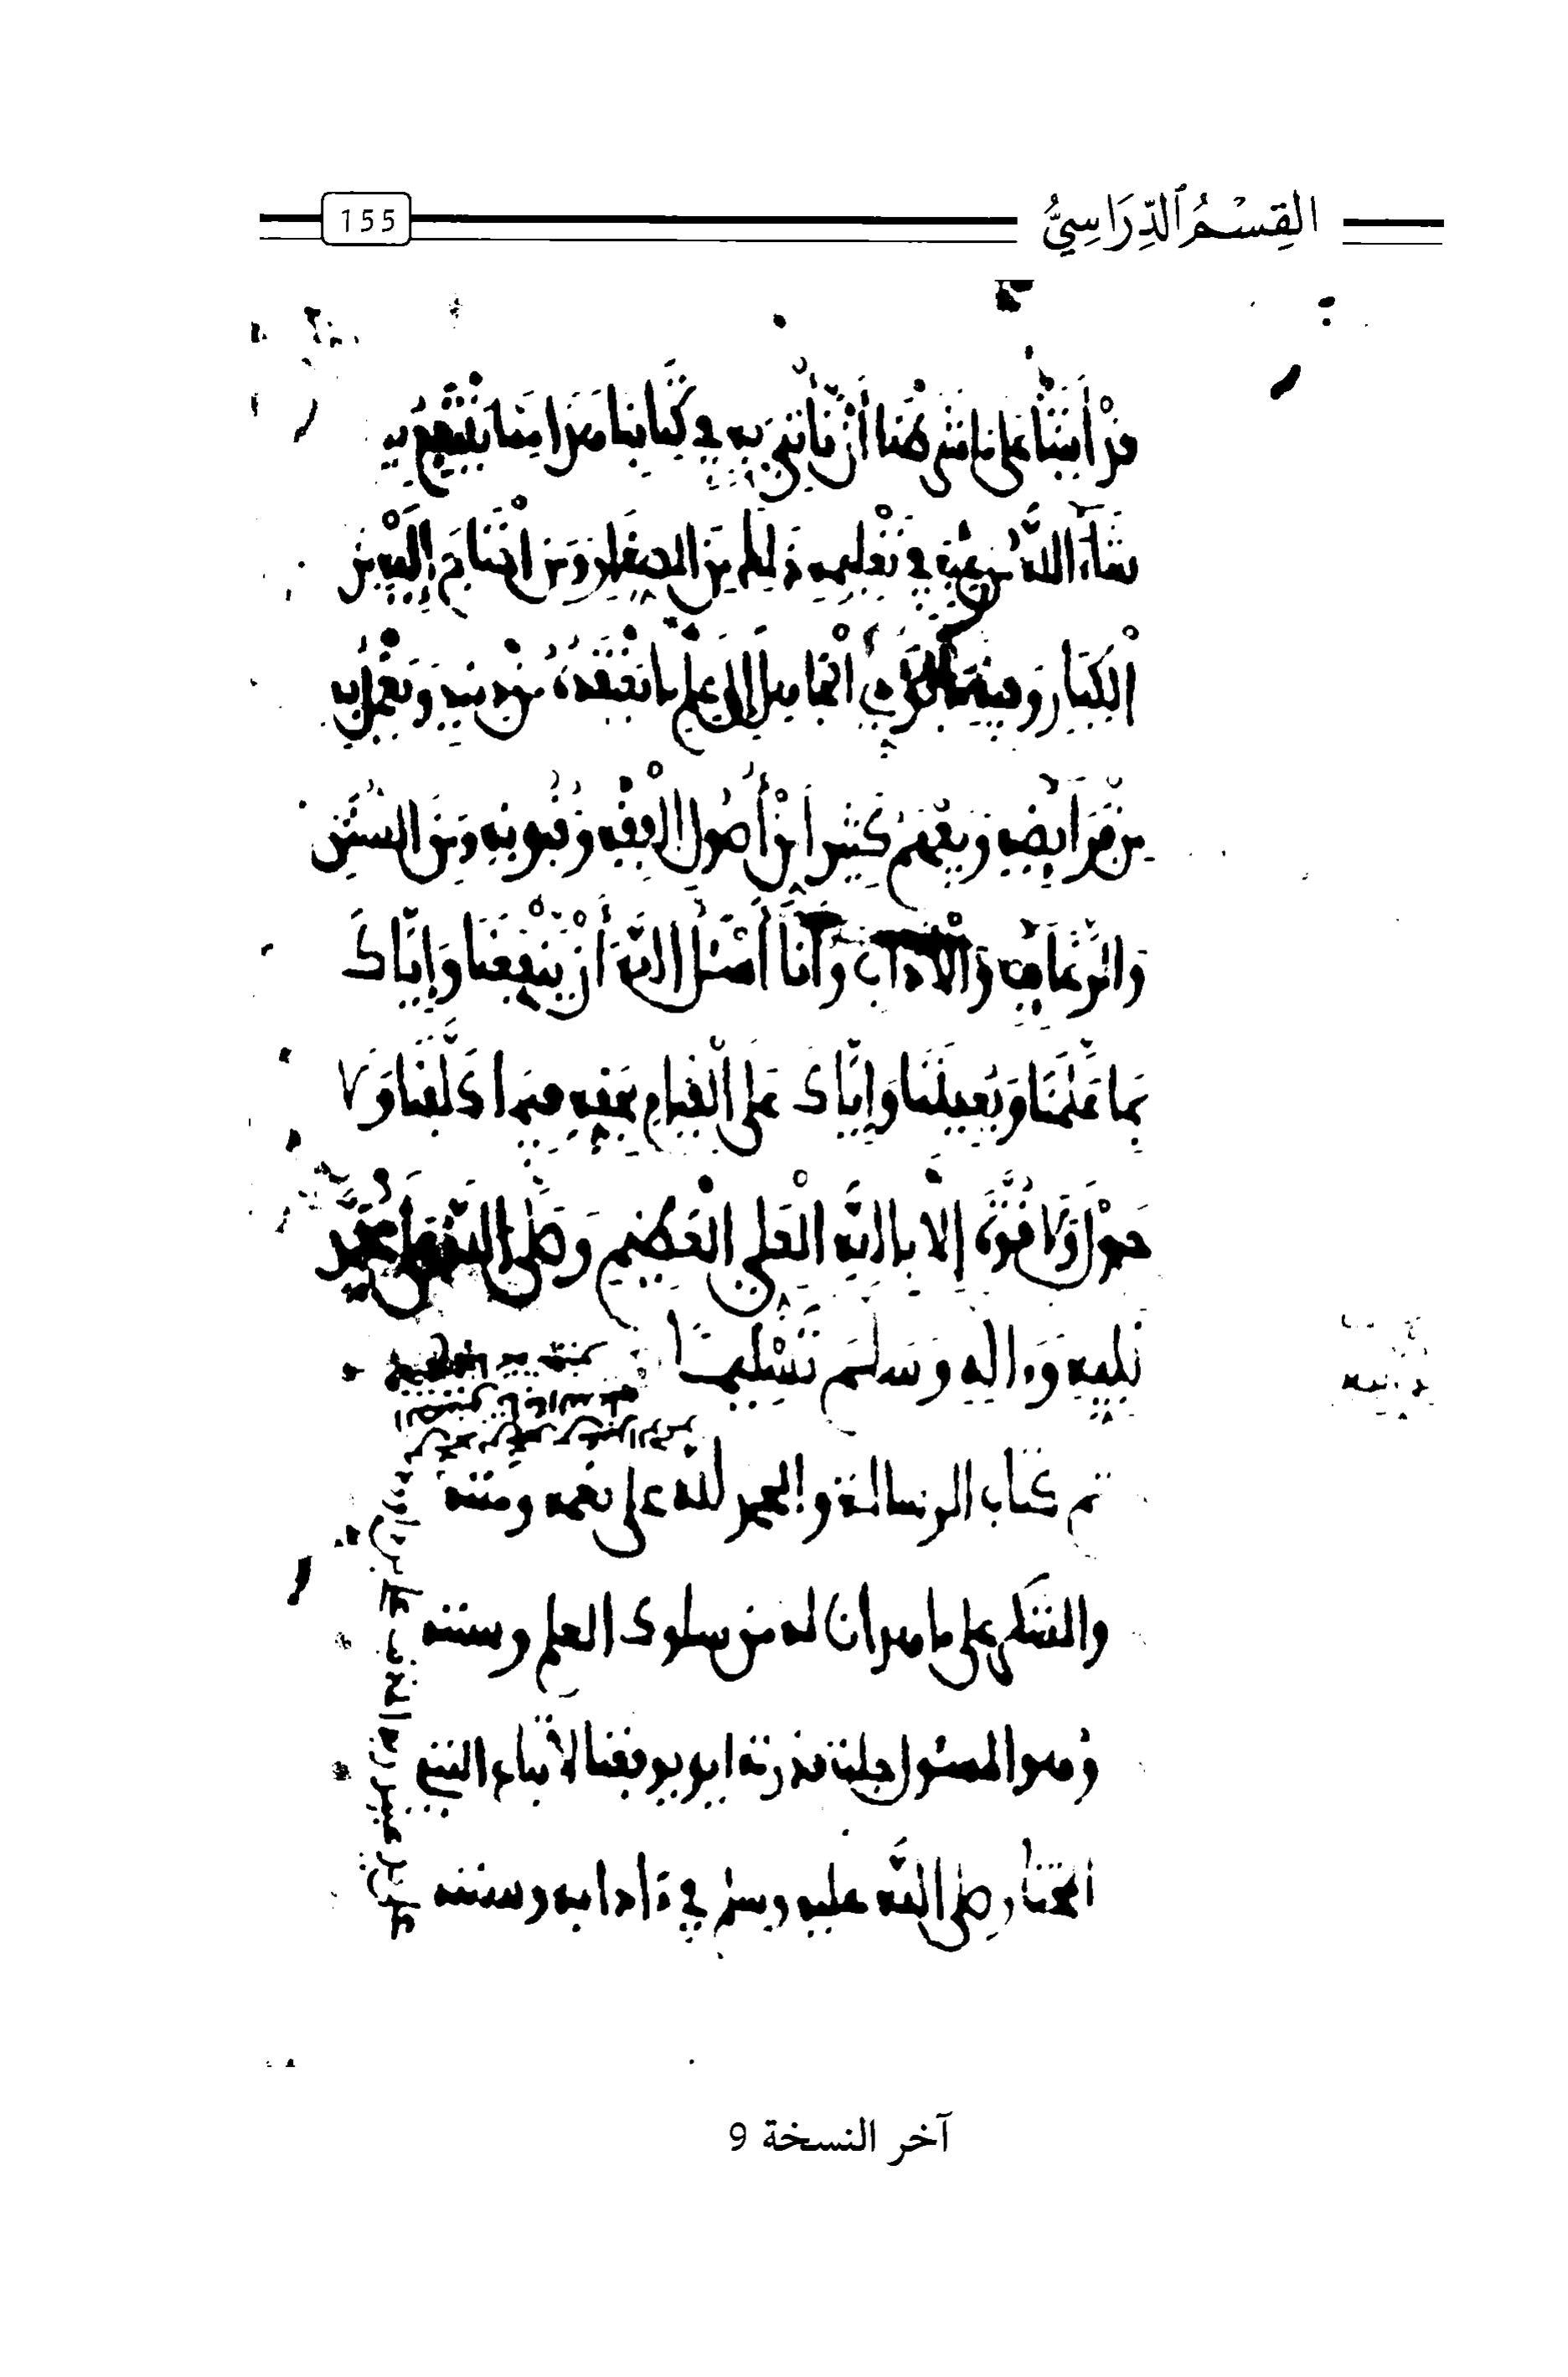 القِسْمُ ٱلدِّرَاسِيُّ 155
قَدْ أَتَيْنَا عَلَى مَا شَرَطْنَا أَنْ نَاتِيَ بِهِ فِي كِتَابِنَا هَذَا مِمَّا يَنْتَفِعُ بِهِ
شَاءَ اللَّهُ مَنْ رَغِبَ فِي تَعْلِيمِ ذَلِكَ مِنَ الصِّغَارِ وَمَنِ احْتَاجَ إِلَيْهِ مِنَ
الْكِبَارِ وَفِيهِ مَا يُؤَدِّي الْجَاهِلَ إِلَى عِلْمِ مَا يَعْتَقِدُهُ مِنْ دِينِهِ وَيَعْمَلُ بِهِ
مِنْ فَرَائِضِهِ وَيَفْهَمُ كَثِيرًا مِنْ أُصُولِ الْفِقْهِ وَفُنُونِهِ وَمِنَ السُّنَنِ
وَالرَّغَائِبِ وَالْآدَابِ وَأَنَا أَسْئَلُ اللَّهَ أَنْ يَنْفَعَنَا وَإِيَّاكَ
بِمَا عَلَّمَنَا وَيُعِينَنَا وَإِيَّاكَ عَلَى الْقِيَامِ بِحَقِّهِ فِيمَا كَلَّفَنَا وَلَا
حَوْلَ وَلَا قُوَّةَ إِلَّا بِاللَّهِ الْعَلِيِّ الْعَظِيمِ وَصَلَّى اللَّهُ عَلَى مُحَمَّدٍ
نَبِيِّهِ وَءَالِهِ وَسَلَّمَ تَسْلِيمًا
تم كتاب الرسالة والحمد لله على نعمه ومننه
والشكر على ما هدانا له من سلوك العلم وسننه
وهو المسئول جلت قدرته ان يوفقنا لاتباع النبي
المختار صلى الله عليه وسلم في ءادابه وسننه
آخر النسخة 9